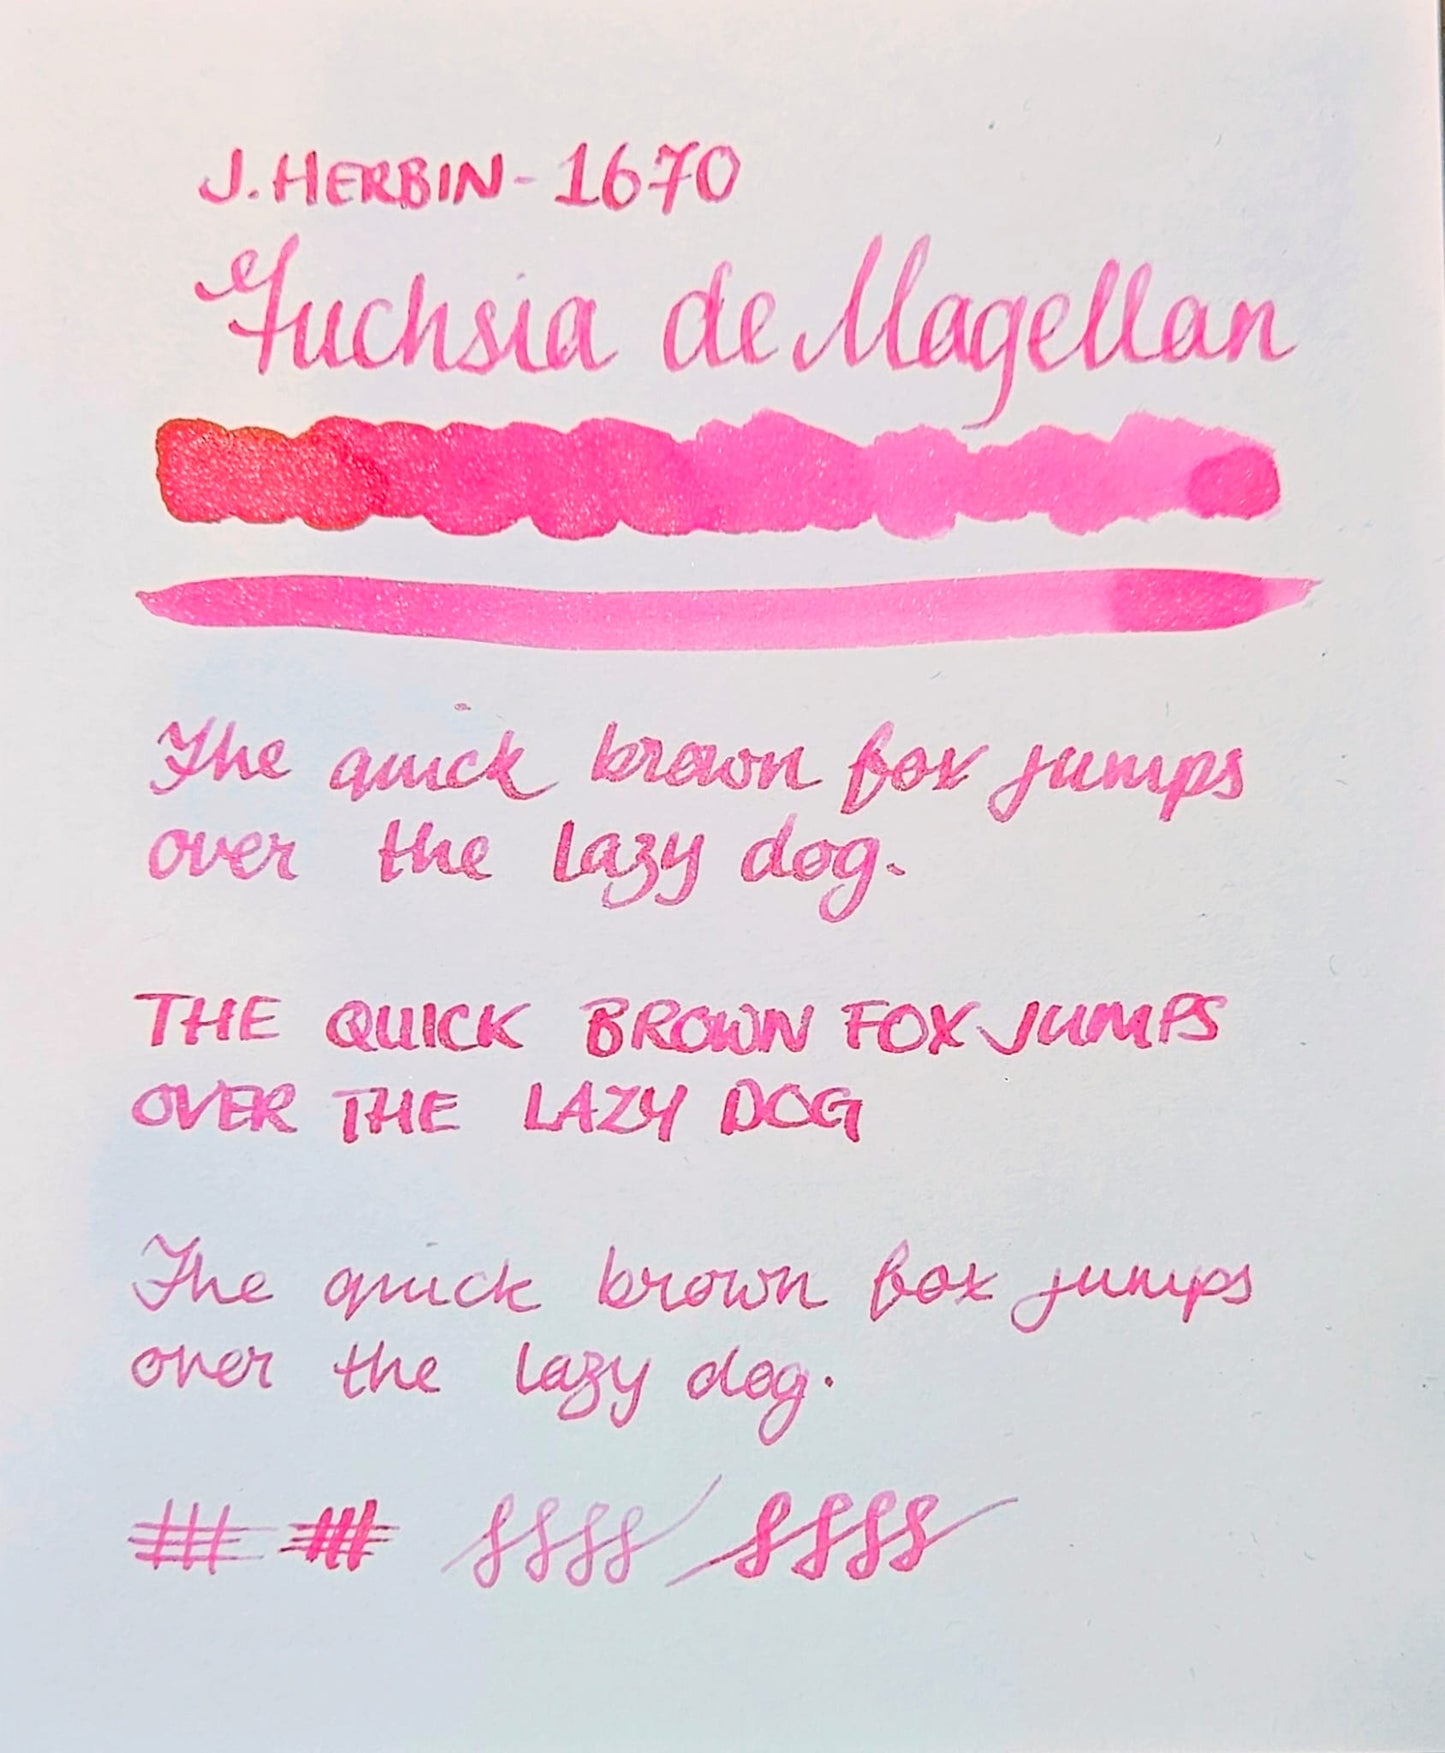 J. HERBIN - 1670
Fuchsia de Magellan
The quick brown fox jumps
over the lazy dog.
THE QUICK BROWN FOX JUMPS
OVER THE LAZY DOG
The quick brown fox jumps
over the lazy dog.